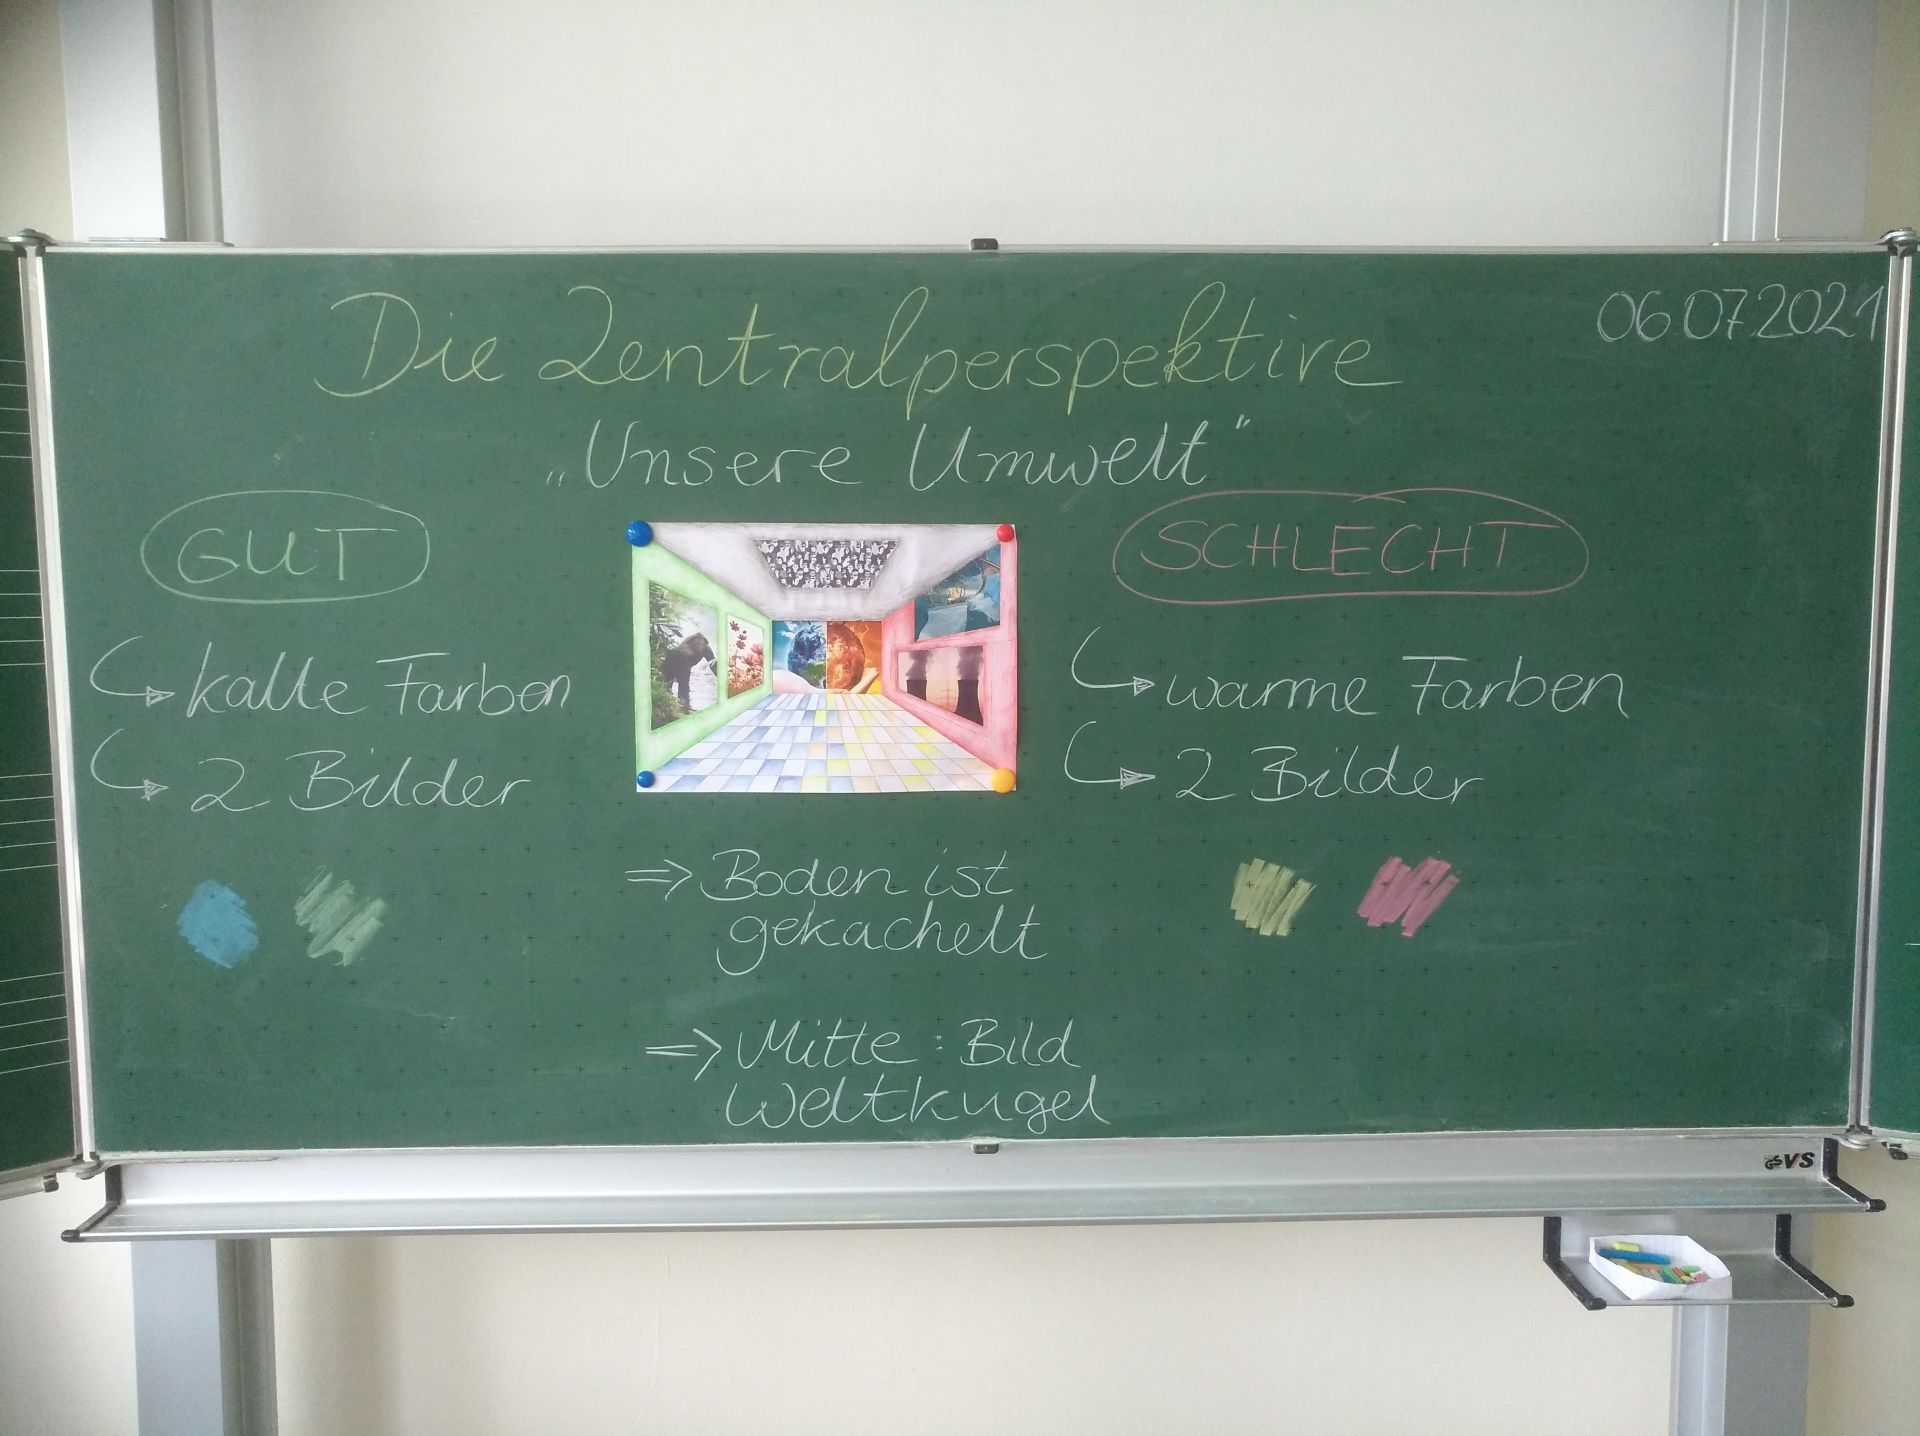 06.07.2021
Die Zentralperspektive
„Unsere Umwelt"
GUT
kalte Farben
2 Bilder
SCHLECHT
warme Farben
2 Bilder
=> Boden ist
gekachelt
=> Mitte: Bild
Weltkugel
GS VS